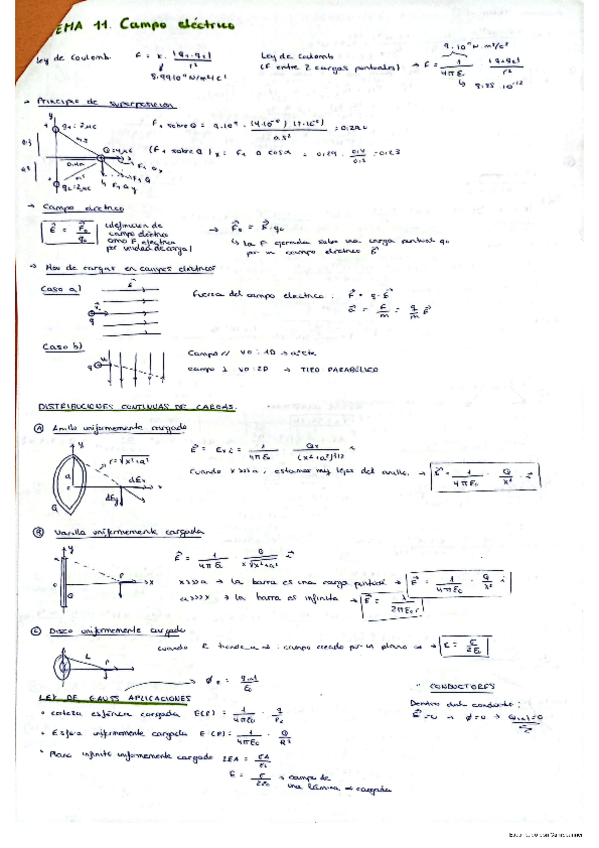 TEMA 11. Campo eléctrico
Ley de Coulomb. F = K · |q₁·q₂| / r²
8.99·10⁹ N·m²/C²
Ley de Coulomb
(F entre 2 cargas puntuales) → F = 1/4πε₀ · |q₁·q₂| / r²
9·10⁹ N·m²/C²
↳ 8.85·10⁻¹²
→ Principio de superposición
F₁ sobre Q = 9·10⁹ · (4·10⁻⁶)(2·10⁻⁶) / 0.5² = 0.29N
(F₁ sobre Q)x = F₁ Q cosα = 0.29 · 0.4/0.5 = 0.23
→ Campo eléctrico
E = F₀/q₀
(definición de campo eléctrico como F eléctrica por unidad de carga)
→ F₀ = E · q₀
↳ La F ejercida sobre una carga puntual q₀
por un campo eléctrico E
→ Mov de cargas en campos eléctricos
Caso a)
Fuerza del campo eléctrico: F = q · E
= F/m = q/m E
Caso b)
Campo // V0: 1D → a cte
campo ⊥ V0: 2D → TIRO PARABÓLICO
DISTRIBUCIONES CONTINUAS DE CARGAS.
Ⓐ Anillo uniformemente cargado
r = √x²+a²
E = Ex i = 1/4πε₀ · Qx/(x²+a²)^3/2 i
Cuando x>>>a, estamos muy lejos del anillo. → E = 1/4πε₀ · Q/x² · i
Ⓑ Varilla uniformemente cargada
E = 1/4πε₀ · Q/x√x²+a² i
x>>>a → la barra es una carga puntual → E = 1/4πε₀ · Q/x² i
a>>>x → la barra es infinita → E = λ/2πε₀r
Ⓒ Disco uniformemente cargado
cuando R tiende a ∞ : campo creado por un plano ∞ → E = σ/2ε₀
LEY DE GAUSS APLICACIONES
• Corteza esférica cargada E(P) = 1/4πε₀ · q
• Esfera uniformemente cargada E(P) = 1/4πε₀ · Q/R²
• Plano infinito uniformemente cargado 2EA = σA/ε₀
E = σ/2ε₀ → campo de
una lámina ∞ cargada
CONDUCTORES
Dentro del conductor:
E=0 → φ=0 →